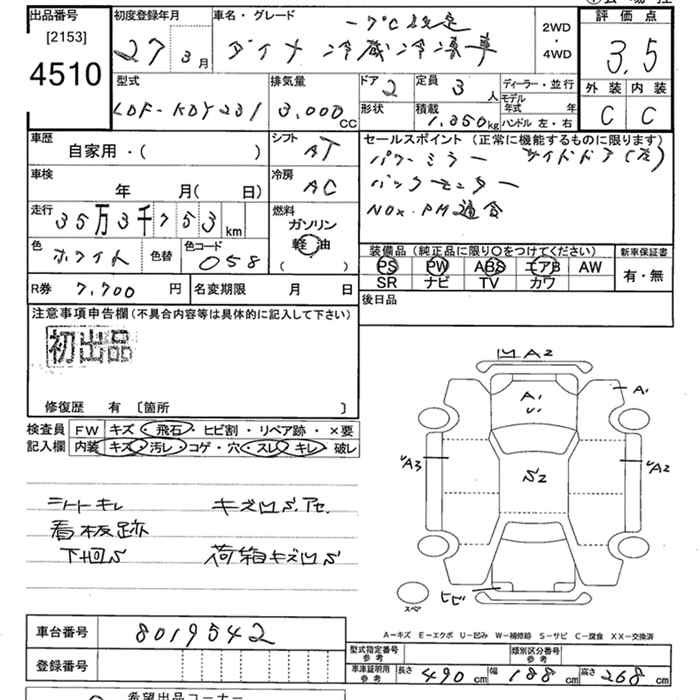 出品番号
[2153]
4510
初度登録年月
27 3月
車名・グレード
-7℃設定
ダイナ 冷蔵冷凍車
2WD
・
4WD
評価点
3.5
外装 内装
C C
型式
LDF-KDY231
排気量
3,000CC
ドア 2
形状
定員 3人
積載 1,350kg
ディーラー・並行
モデル年式 年
ハンドル 左・右
車歴
自家用・( )
シフト AT
車検
年 月( 日)
冷房 AC
走行
35万3千753km
燃料
ガソリン
軽油
( )
色 ホワイト 色替
色コード 058
R券 7,700円
名変期限 月 日
セールスポイント (正常に機能するものに限ります)
パワーミラー サイドドア(左)
バックモニター
NOx・PM適合
装備品 (純正品に限り○をつけてください)
PS PW ABS エアB AW
SR ナビ TV カワ
新車保証書
有・無
後日品
注意事項申告欄(不具合内容等は具体的に記入して下さい)
初出品
修復歴 有 [箇所 ]
検査員記入欄
FW キズ・飛石・ヒビ割・リペア跡・×要
内装 キズ・汚レ・コゲ・穴・スレ・キレ・破レ
シートキレ キズ凹S.アセ
看板跡
下回S 荷箱キズ凹S
凹A2
A1
U1
A1
UA3
S2
UA2
ヒビ
スペア
A−キズ E−エクボ U−凹み W−補修跡 S−サビ C−腐食 XX−交換済
車台番号 8019542
登録番号
型式指定番号 参考
類別区分番号 参考
車車証明用 参考 長さ 490cm 幅 188cm 高さ 268cm
希望出品コーナー